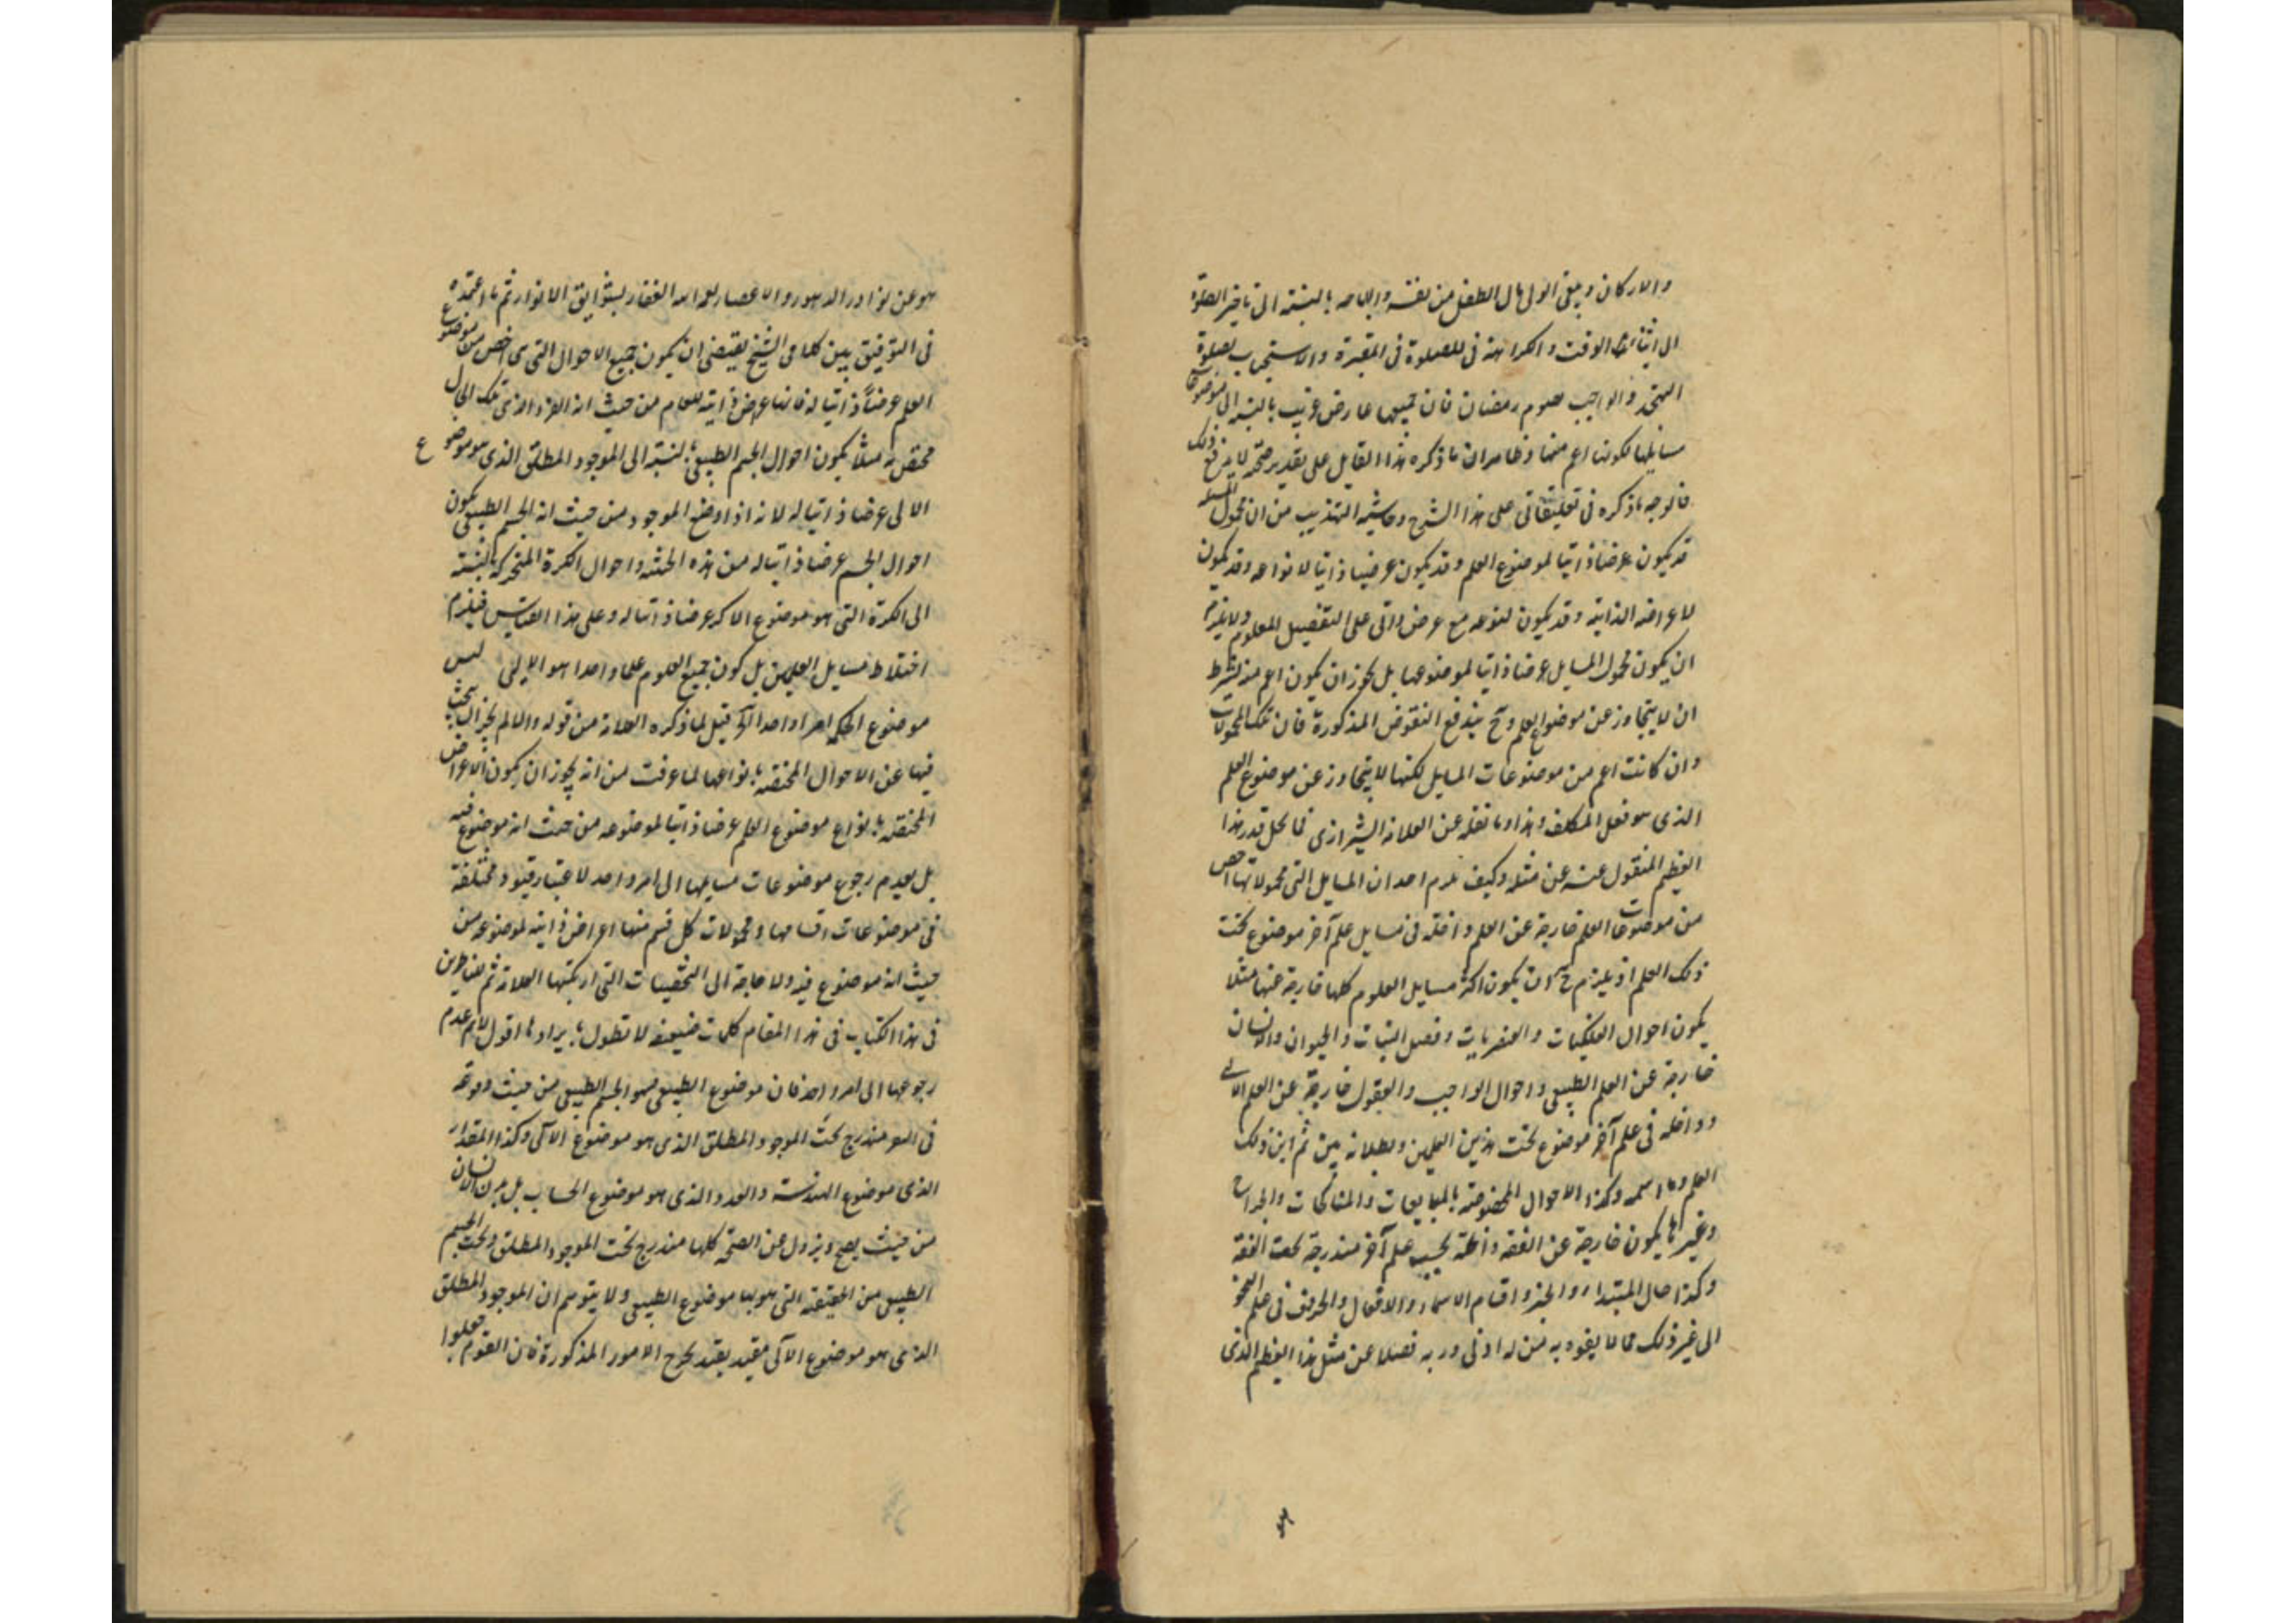 والاركان وعلى الولى مال الطفل من نفسه والاباحه بالنسبة الى تاخير الصلوة
الى اثناء الوقت والكراهة فى للصلوة فى المقبرة والاستحباب لصلوة
التهجد والواجب صوم رمضان فان جميعها عارض غريب بالنسبة الى موضوعات
مسايلها لكونها اعم منها وظاهر ان ما ذكره هذا القايل على تقدير صحته لا يدفع ذلك
فالوجه ما ذكره فى تعليقاتى على هذا الشرح وحاشية التهذيب من ان محمول المسئلة
قد يكون عرضا ذاتيا لموضوع العلم وقد يكون عرضيا ذاتيا لانواعه وقد يكون
لاعراضه الذاتية وقد يكون لنوعه مع عرض ذاتى على التفصيل المعلوم ولا يلزم
ان يكون محمول المسايل عرضا ذاتيا لموضوعها بل يجوز ان يكون اعم منه بشرط
ان لا يتجاوز عن موضوع العلم وح يندفع النقوض المذكورة فان تلك المحمولات
وان كانت اعم من موضوعات المسايل لكنها لا يتجاوز عن موضوع العلم
الذى هو فعل المكلف وهذا وما نقله عن العلامة الشيرازى مما يحل قدر هذا
العظيم المنقول عنه عن مثله وكيف يلزم احد ان المسايل التى محمولاتها اخص
من موضوعات العلم خارجة عن العلم داخلة فى مسايل علم آخر موضوع تحت
ذلك العلم اذ يلزم ح ان يكون اكثر مسايل العلوم كلها خارجة عنها مثلا
يكون احوال الفلكيات والعنصريات وفصل النبات والحيوان والانسان
خارجة عن العلم الطبيعى واحوال الواجب والعقول خارجة عن العلم الالهى
وداخلة فى علم آخر موضوع تحت هذين العلمين وبطلانه بين ثم اين ذلك
العلم وما اسمه وكذا الاحوال المخصوصة بالمبايعات والمناكحات والجراح
وغيرها يكون خارجة عن الفقه داخلة بحسب علم آخر مندرجة تحت الفقه
وكذا حال المبتداء والخبر واقسام الاسماء والافعال والحروف فى علم النحو
الى غير ذلك مما لا يفوه به من له ادنى دربه فضلا عن مثل هذا العظيم الذى
هو عن نوادر الدهور والاعصار الغفار بشوايق الانوار ثم ما اعتمده
فى التوفيق بين كلامى الشيخ يقتضى ان يكون جميع الاحوال التى هى اخص من موضوع
العلم عرضاً ذاتيا له فانها عرض ذاتية للعام من حيث انه الفرد الذى تلك الحال
مختص به مثلاً يكون احوال الجسم الطبيعى بالنسبة الى الموجود المطلق الذى هو موضوع
الالهى عرضا ذاتيا له لانه اذا وضع الموجود من حيث انه الجسم الطبيعى يكون
احوال الجسم عرضا ذاتيا له من هذه الحيثية واحوال الكرة المتحركة بالنسبة
الى الكرة التى هو موضوع الاكر عرضا ذاتيا له وعلى هذا القياس فيلزم
اختلاط مسايل العلمين بل كون جميع العلوم علما واحدا هو الالهى ليس
موضوع الحكمة امرا واحدا آه قيل لما ذكره العلامة من قوله والا لم يجز ان يبحث
فيها عن الاحوال المختصة بانواعها لما عرفت من انه يجوز ان يكون الاعراض
المختصة بانواع موضوع العلم عرضا ذاتيا لموضوعه من حيث انه موضوع فيه
بل لعدم رجوع موضوعات مسايلها الى امر واحد لاعتبار قيود مختلفة
فى موضوعات اقسامها ومحمولات كل قسم منها اعراض ذاتية لموضوعه من
حيث انه موضوع فيه ولا حاجة الى التخصيصات التى ارتكبها العلامة ثم للناظرين
فى هذا الكتاب فى هذا المقام كلمات ضعيفة لا تطول بايرادها اقول لا نم عدم
رجوعها الى امر واحد فان موضوع الطبيعى هو الجسم الطبيعى من حيث وقوعه
فى التغير مندرج تحت الموجود المطلق الذى هو موضوع الالهى وكذا المقدار
الذى موضوع الهندسة والعدد الذى هو موضوع الحساب بل بدن الانسان
من حيث يصح ويزول عن الصحة كلها مندرج تحت الموجود المطلق وتحت الجسم
الطبيعى من الحقيقة التى هو بها موضوع الطبيعى ولا يتوهم ان الموجود المطلق
الذى هو موضوع الالهى مقيد بقيد يخرج الامور المذكورة فان القوم جعلوا